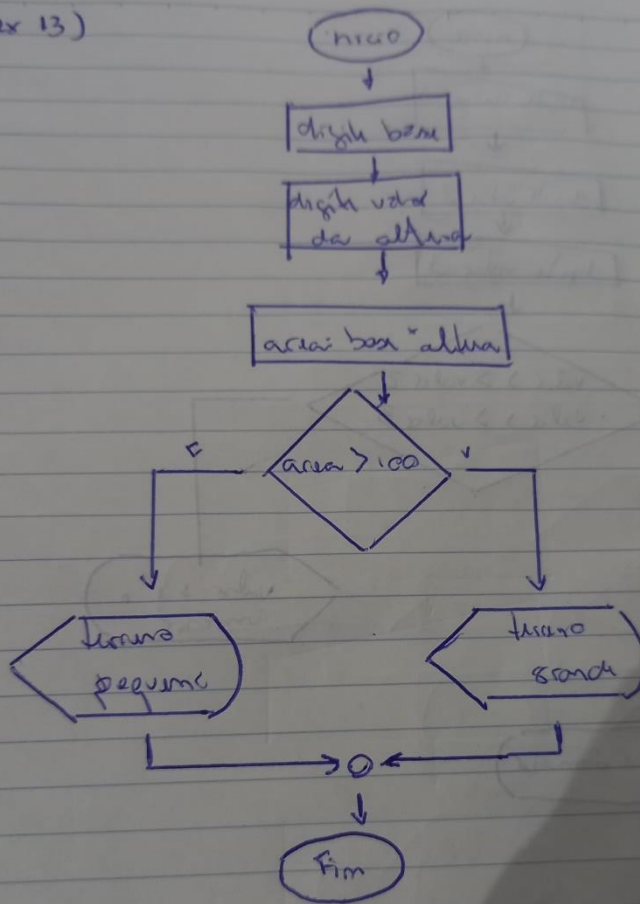 ex 13)
inicio
digite base
digite valor
da altura
area: base * altura
area > 100
F
V
terreno
pequeno
terreno
grande
Fim